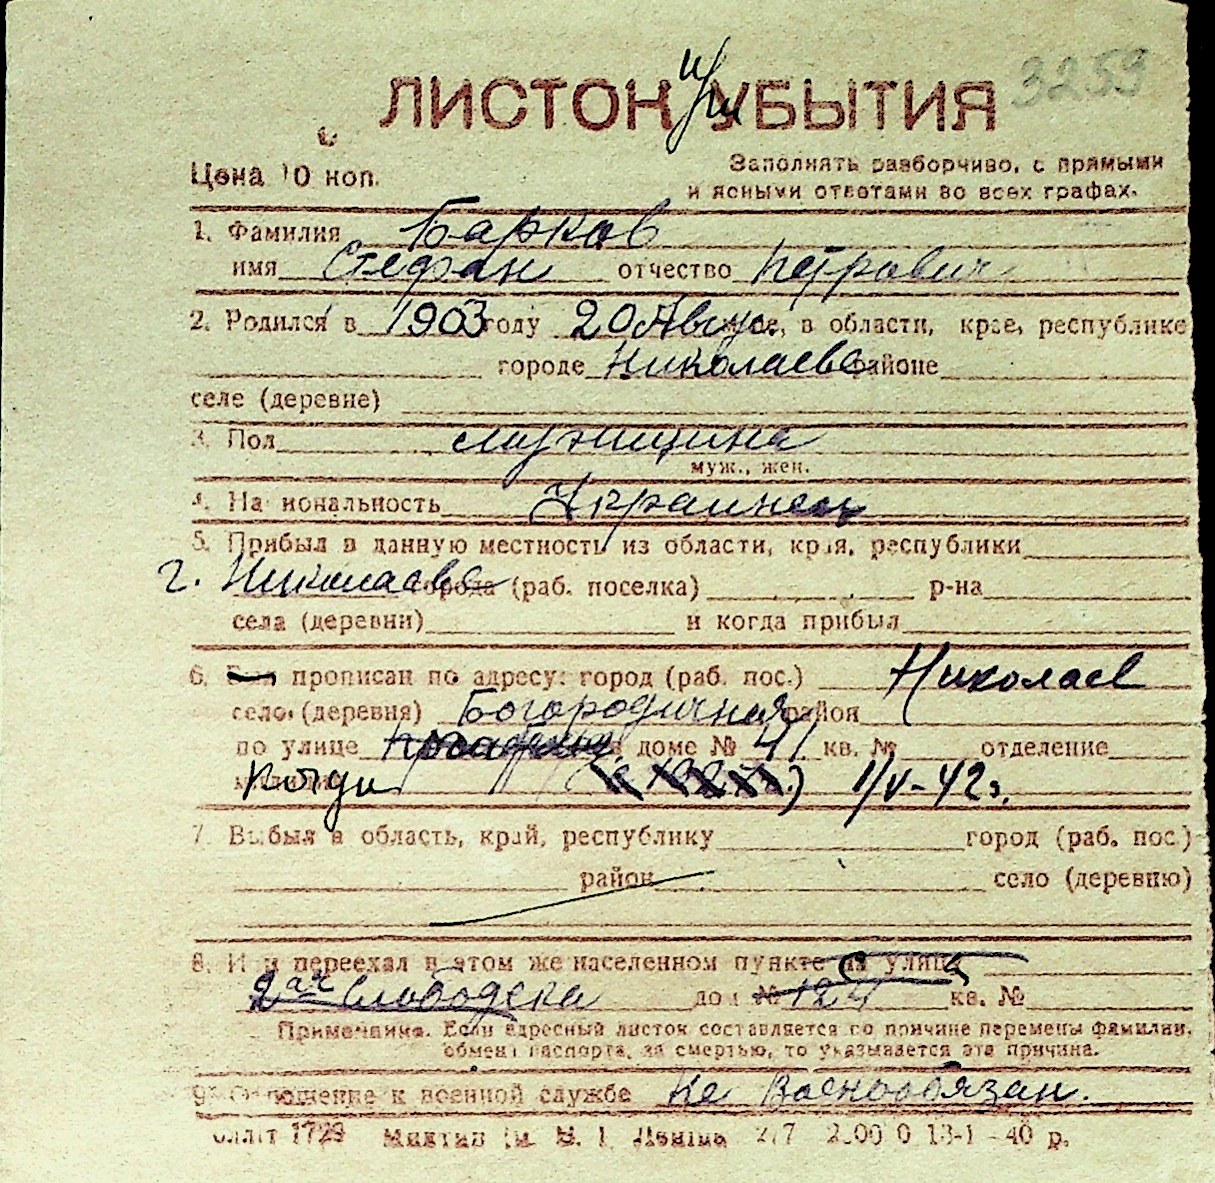 3259
при
ЛИСТОК УБЫТИЯ
Цена 10 коп.
Заполнять разборчиво, с прямыми
и ясными ответами во всех графах.
1. Фамилия Барков
имя Стефан отчество Петрович
2. Родился в 1903 году 20 Авгус. в области, крае, республике
городе Николаеве районе
селе (деревне)
3. Пол мужщина
муж., жен.
4. Национальность Украинец
5. Прибыл в данную местность из области, края, республики
г. Николаева города (раб. поселка) р-на
села (деревни) и когда прибыл
6. Был прописан по адресу: город (раб. пос.) Николаев
село (деревня) Богородичная район
по улице в доме № 41 кв. № отделение
1/V-42г.
7. Выбыл в область, край, республику город (раб. пос.)
район село (деревню)
8. Или переехал в этом же населенном пункте на улицу
2ая Слободска дом № 124 кв. №
Примечание. Если адресный листок составляется по причине перемены фамилии,
обмена паспорта, за смертью, то указывается эта причина.
9. Отношение к военной службе Не Военнообязан.
1729 ім. В. І. Леніна 40 р.